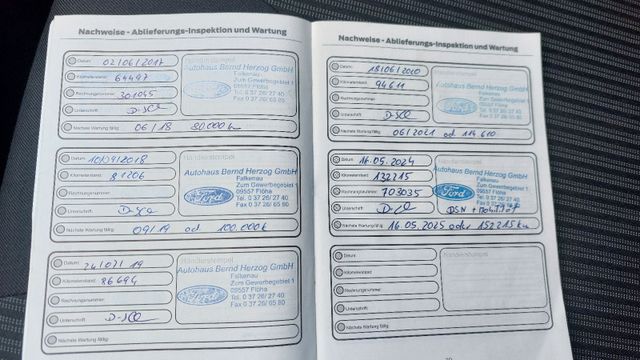 Nachweise - Ablieferungs-Inspektion und Wartung
Datum: 02/06/2017
Kilometerstand: 64497
Rechnungsnummer: 301045
Unterschrift:
Nächste Wartung fällig: 06/18 80.000 km
Händlerstempel
Autohaus Bernd Herzog GmbH
Falkenau
Zum Gewerbegebiet 1
09557 Flöha
Tel. 0 37 26/27 40
Fax 0 37 26/65 80
Datum: 10/09/2018
Kilometerstand: 81206
Rechnungsnummer:
Unterschrift:
Nächste Wartung fällig: 09/19 od 100.000 k
Händlerstempel
Autohaus Bernd Herzog GmbH
Falkenau
Zum Gewerbegebiet 1
09557 Flöha
Tel. 0 37 26/27 40
Fax 0 37 26/65 80
Ford
Datum: 19
Kilometerstand: 86694
Rechnungsnummer:
Unterschrift:
Nächste Wartung fällig:
Händlerstempel
Autohaus Bernd Herzog GmbH
Falkenau
Zum Gewerbegebiet 1
09557 Flöha
Tel. 0 37 26/27 40
Fax 0 37 26/65 80
Nachweise - Ablieferungs-Inspektion und Wartung
Datum: 18/06/2020
Kilometerstand: 94611
Rechnungsnummer:
Unterschrift:
Nächste Wartung fällig: 06/2021 od 114610
Autohaus Bernd Herzog GmbH
Falkenau
Zum Gewerbegebiet 1
09557 Flöha
Tel. 0 37 26/27 40
Fax 0 37 26/65 80
Datum: 16.05.2024
Kilometerstand: 132215
Rechnungsnummer: 703035
Unterschrift:
Nächste Wartung fällig: 16.05.2025 oder 152215 km
Händlerstempel
Autohaus Bernd Herzog GmbH
Falkenau
Zum Gewerbegebiet 1
09557 Flöha
Tel. 0 37 26/27 40
Fax 0 37 26/65 80
Ford
Datum:
Kilometerstand:
Rechnungsnummer:
Unterschrift:
Nächste Wartung fällig:
Händlerstempel